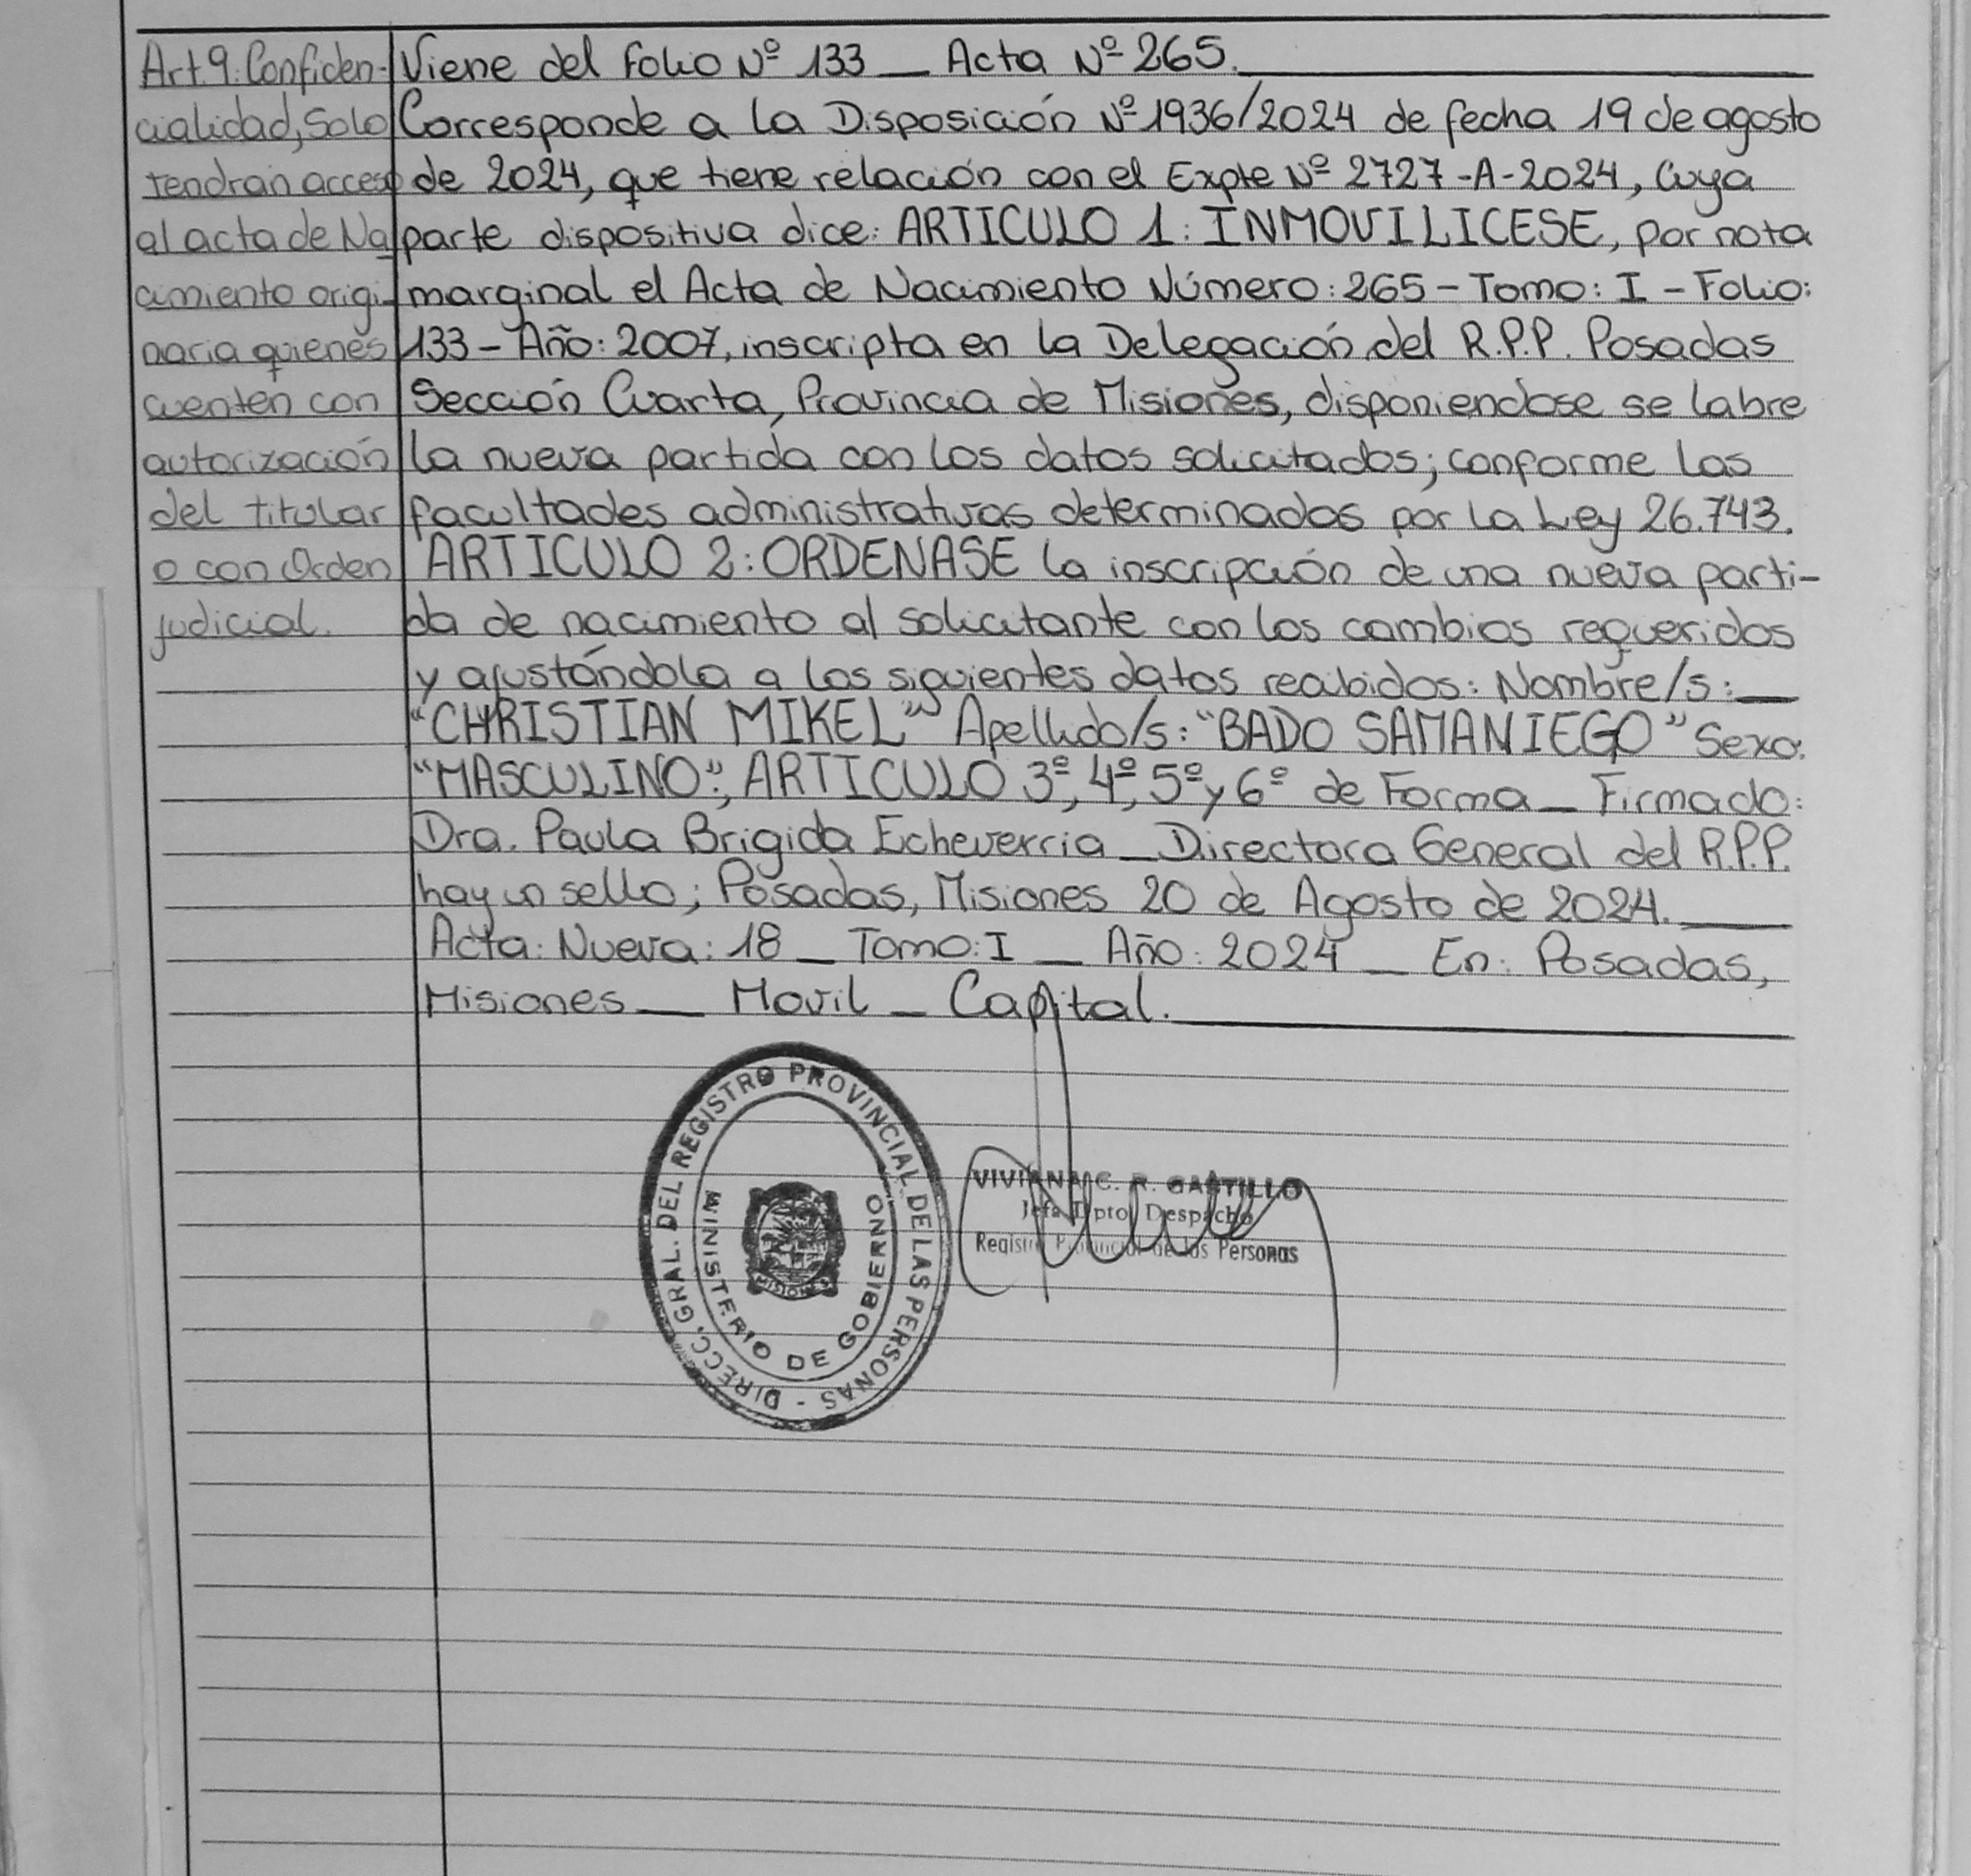 Art. 9: Confiden-
cialidad, Solo
tendran acceso
al acta de Na_
cimiento origi_
naria quienes
cuenten con
autorización
del titular
o con Orden
judicial.
Viene del Folio Nº 133 _ Acta Nº 265.
Corresponde a la Disposición Nº 1936/2024 de fecha 19 de agosto
de 2024, que tiene relación con el Expte Nº 2727-A-2024, Cuya
parte dispositiva dice: ARTICULO 1: INMOVILICESE, por nota
marginal el Acta de Nacimiento Número: 265 - Tomo: I - Folio:
133 - Año: 2007, inscripta en la Delegación del R.P.P. Posadas
Sección Cuarta, Provincia de Misiones, disponiendose se labre
la nueva partida con los datos solicitados; conforme las
facultades administrativas determinadas por la Ley 26.743.
ARTICULO 2: ORDENASE la inscripción de una nueva parti-
da de nacimiento al solicitante con los cambios requeridos
y ajustándola a los siguientes datos recibidos: Nombre/s: _
"CHRISTIAN MIKEL" Apellido/s: "BADO SAMANIEGO" Sexo:
"MASCULINO", ARTICULO 3º, 4º, 5º y 6º de Forma _ Firmado:
Dra. Paula Brigida Echeverria _ Directora General del R.P.P.
hay un sello; Posadas, Misiones 20 de Agosto de 2024. _
Acta: Nueva: 18 _ Tomo: I _ Año: 2024 _ En: Posadas,
Misiones _ Movil _ Capital.
DIRECC. GRAL. DEL REGISTRO PROVINCIAL DE LAS PERSONAS -
MINISTERIO DE GOBIERNO
MISIONES
VIVIANA C. R. CASTILLO
Jefa Dpto Despacho
Registro Provincial de las Personas